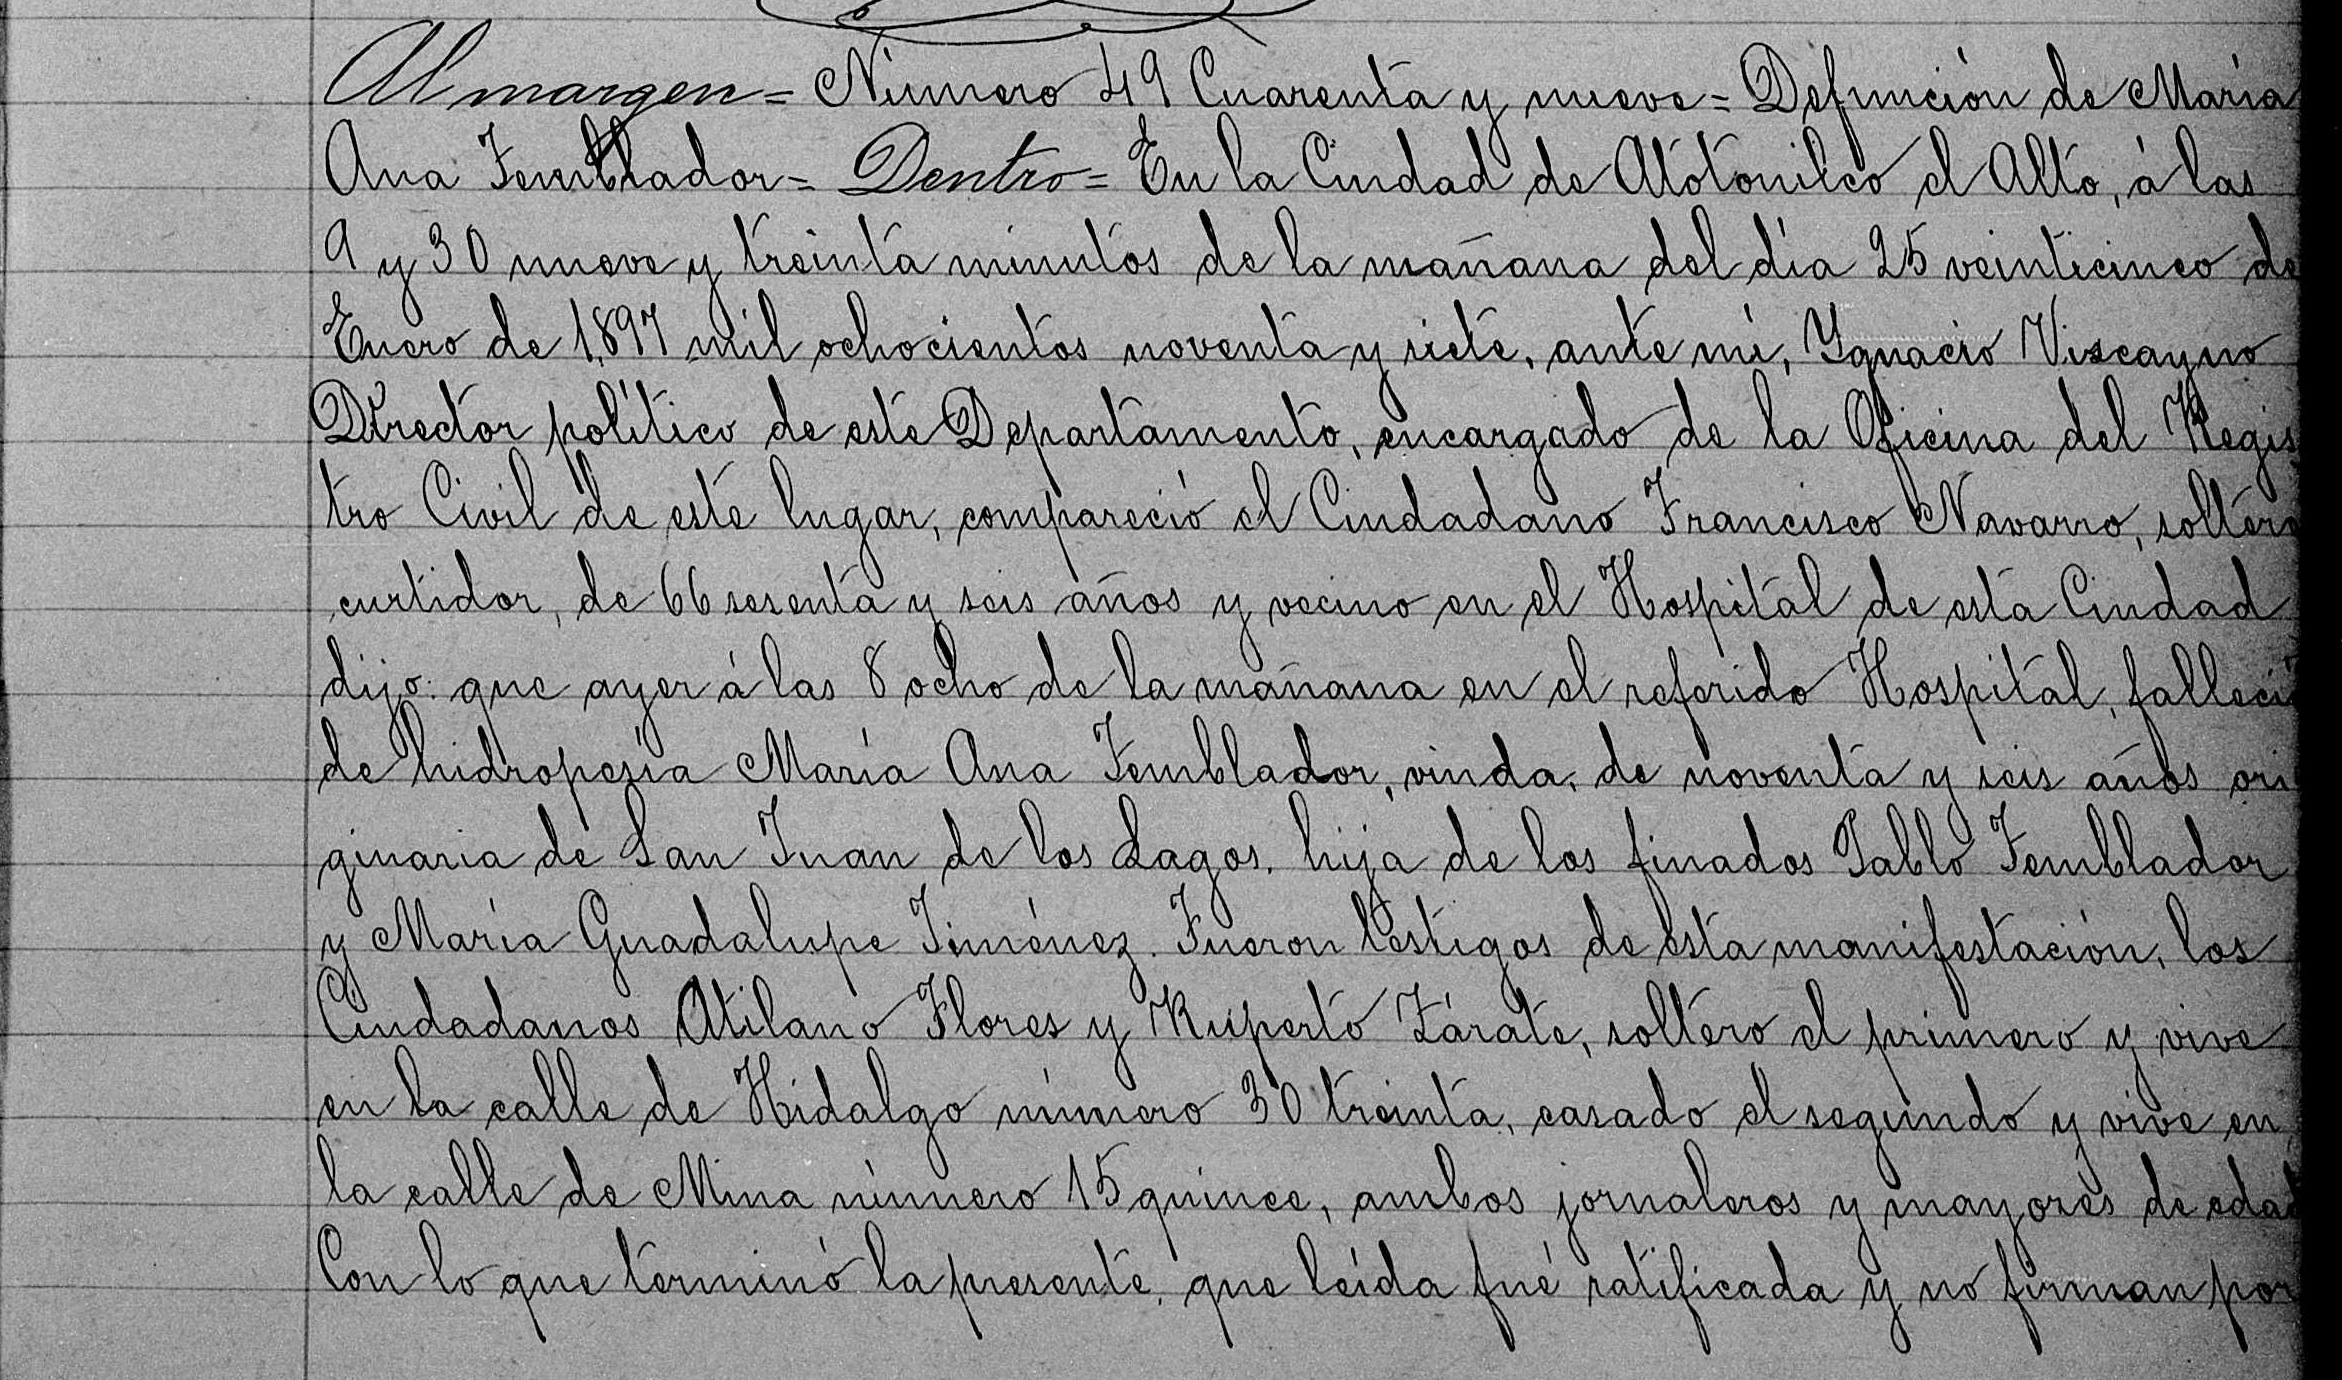 Al margen = Número 49 Cuarenta y nueve = Defunción de María
Ana Temblador = Dentro = En la Ciudad de Atotonilco el Alto, á las
9 y 30 nueve y treinta minutos de la mañana del día 25 veinticinco de
Enero de 1,897 mil ochocientos noventa y siete, ante mí, Ygnacio Viscayno
Director político de este Departamento, encargado de la Oficina del Regis
tro Civil de este lugar, compareció el Ciudadano Francisco Navarro, soltero
curtidor, de 66 sesenta y seis años y vecino en el Hospital de esta Ciudad
dijo: que ayer á las 8 ocho de la mañana en el referido Hospital, falleció
de hidropesía María Ana Temblador, viuda, de noventa y seis años ori
ginaria de San Juan de los Lagos, hija de los finados Pablo Temblador
y María Guadalupe Jiménez. Fueron testigos de esta manifestación, los
Ciudadanos Atilano Flores y Ruperto Zárate, soltero el primero y vive
en la calle de Hidalgo número 30 treinta, casado el segundo y vive en
la calle de Mina número 15 quince, ambos jornaleros y mayores de edad
Con lo que terminó la presente, que leída fué ratificada y no firman por